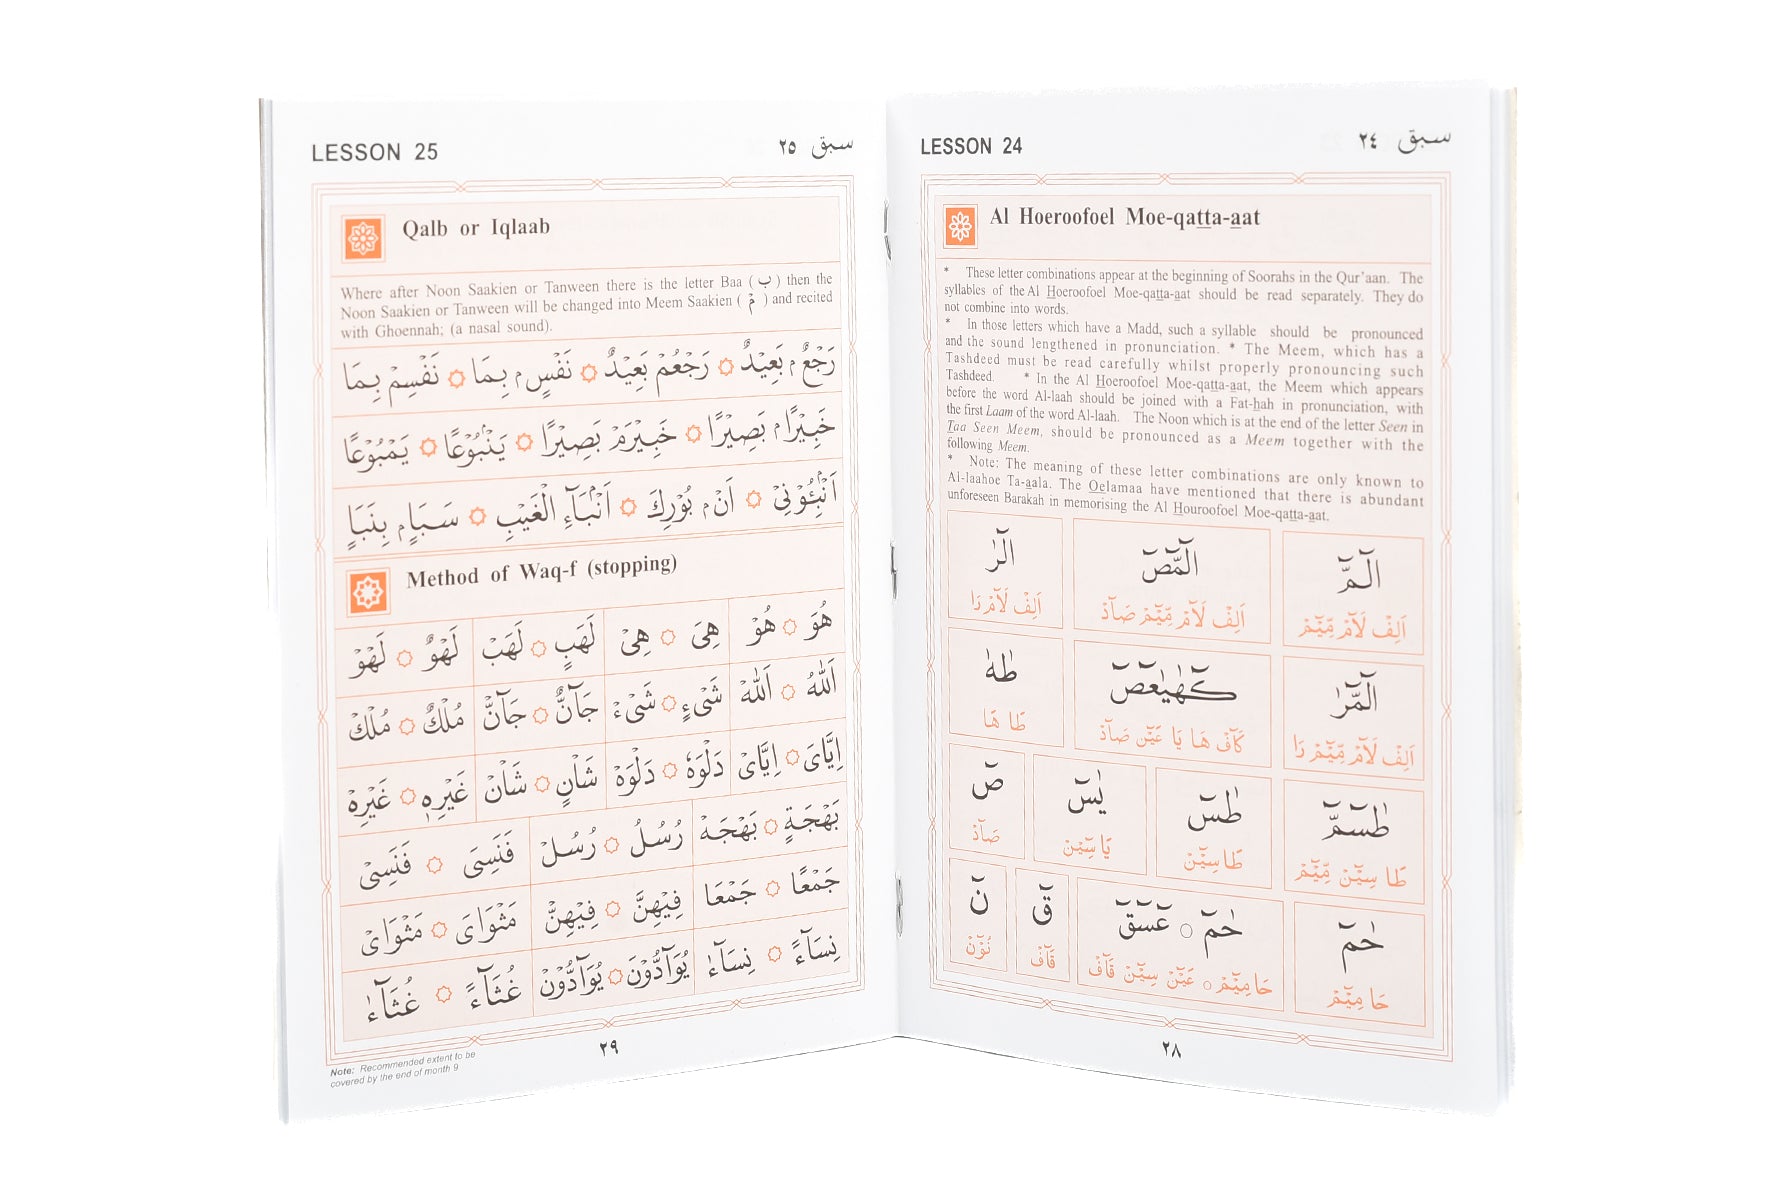 LESSON 24 سبق ٢٤
Al Hoeroofoel Moe-qatta-aat
* These letter combinations appear at the beginning of Soorahs in the Qur'aan. The
syllables of the Al Hoeroofoel Moe-qatta-aat should be read separately. They do
not combine into words.
* In those letters which have a Madd, such a syllable should be pronounced
and the sound lengthened in pronunciation. * The Meem, which has a
Tashdeed must be read carefully whilst properly pronouncing such
Tashdeed. * In the Al Hoeroofoel Moe-qatta-aat, the Meem which appears
before the word Al-laah should be joined with a Fat-hah in pronunciation, with
the first Laam of the word Al-laah. The Noon which is at the end of the letter Seen in
Taa Seen Meem, should be pronounced as a Meem together with the
following Meem.
* Note: The meaning of these letter combinations are only known to
Al-laahoe Ta-aala. The Oelamaa have mentioned that there is abundant
unforeseen Barakah in memorising the Al Houroofoel Moe-qatta-aat.
الٓمّٓ الٓمّٓصٓ الٓرٰ
اَلِفْ لَآمْ مِّیْٓمْ اَلِفْ لَآمْ مِّیْٓمْ صَآدْ اَلِفْ لَآمْ رَا
الٓمّٓرٰ كٓهٰیٰعٓصٓ طٰهٰ
اَلِفْ لَآمْ مِّیْٓمْ رَا كَآفْ هَا یَا عَیْٓنْ صَآدْ طَا هَا
طٰسٓمّٓ طٰسٓ یٰسٓ صٓ
طَا سِیْٓنْ مِّیْٓمْ طَا سِیْٓنْ یَا سِیْٓنْ صَآدْ
حٰمٓ حٰمٓ ○ عٓسٓقٓ قٓ نٓ
حَا مِیْٓمْ حَا مِیْٓمْ ○ عَیْٓنْ سِیْٓنْ قَآفْ قَآفْ نُوْٓنْ
٢٨
LESSON 25 سبق ٢٥
Qalb or Iqlaab
Where after Noon Saakien or Tanween there is the letter Baa ( ب ) then the
Noon Saakien or Tanween will be changed into Meem Saakien ( مْ ) and recited
with Ghoennah; (a nasal sound).
رَجْعٌۢ بَعِیْدٌ رَجْعُمْ بَعِیْدٌ نَفْسٍۢ بِمَا نَفْسِمْ بِمَا
خَبِیْرًاۢ بَصِیْرًا خَبِیْرَمْ بَصِیْرًا یَنْۢبُوْعًا یَمْبُوْعًا
اَنْۢبِئُوْنِیْ اَنْۢ بُوْرِكَ اَنْۢبَآءِ الْغَیْبِ سَبَاٍۢ بِنَبَاٍ
Method of Waq-f (stopping)
هُوَ هُوْ هِیَ هِیْ لَهَبٍ لَهَبْ لَهْوٌ لَهْوْ
اَللّٰهُ اَللّٰهْ شَیْءٍ شَیْءْ جَآنٌّ جَآنّْ مُلْكٌ مُلْكْ
اِیَّایَ اِیَّایْ دَلْوَهٗ دَلْوَهْ شَاْنٍ شَاْنْ غَیْرِهٖ غَیْرِهْ
بَهْجَةٍ بَهْجَهْ رُسُلُ رُسُلْ فَنَسِیَ فَنَسِیْ
جَمْعًا جَمْعَا فِیْهِنَّ فِیْهِنّْ مَثْوَایَ مَثْوَایْ
نِسَآءً نِسَآءٰ یُوَآدُّوْنَ یُوَآدُّوْنْ غُثَآءً غُثَآءٰ
٢٩
Note: Recommended extent to be
covered by the end of month 9